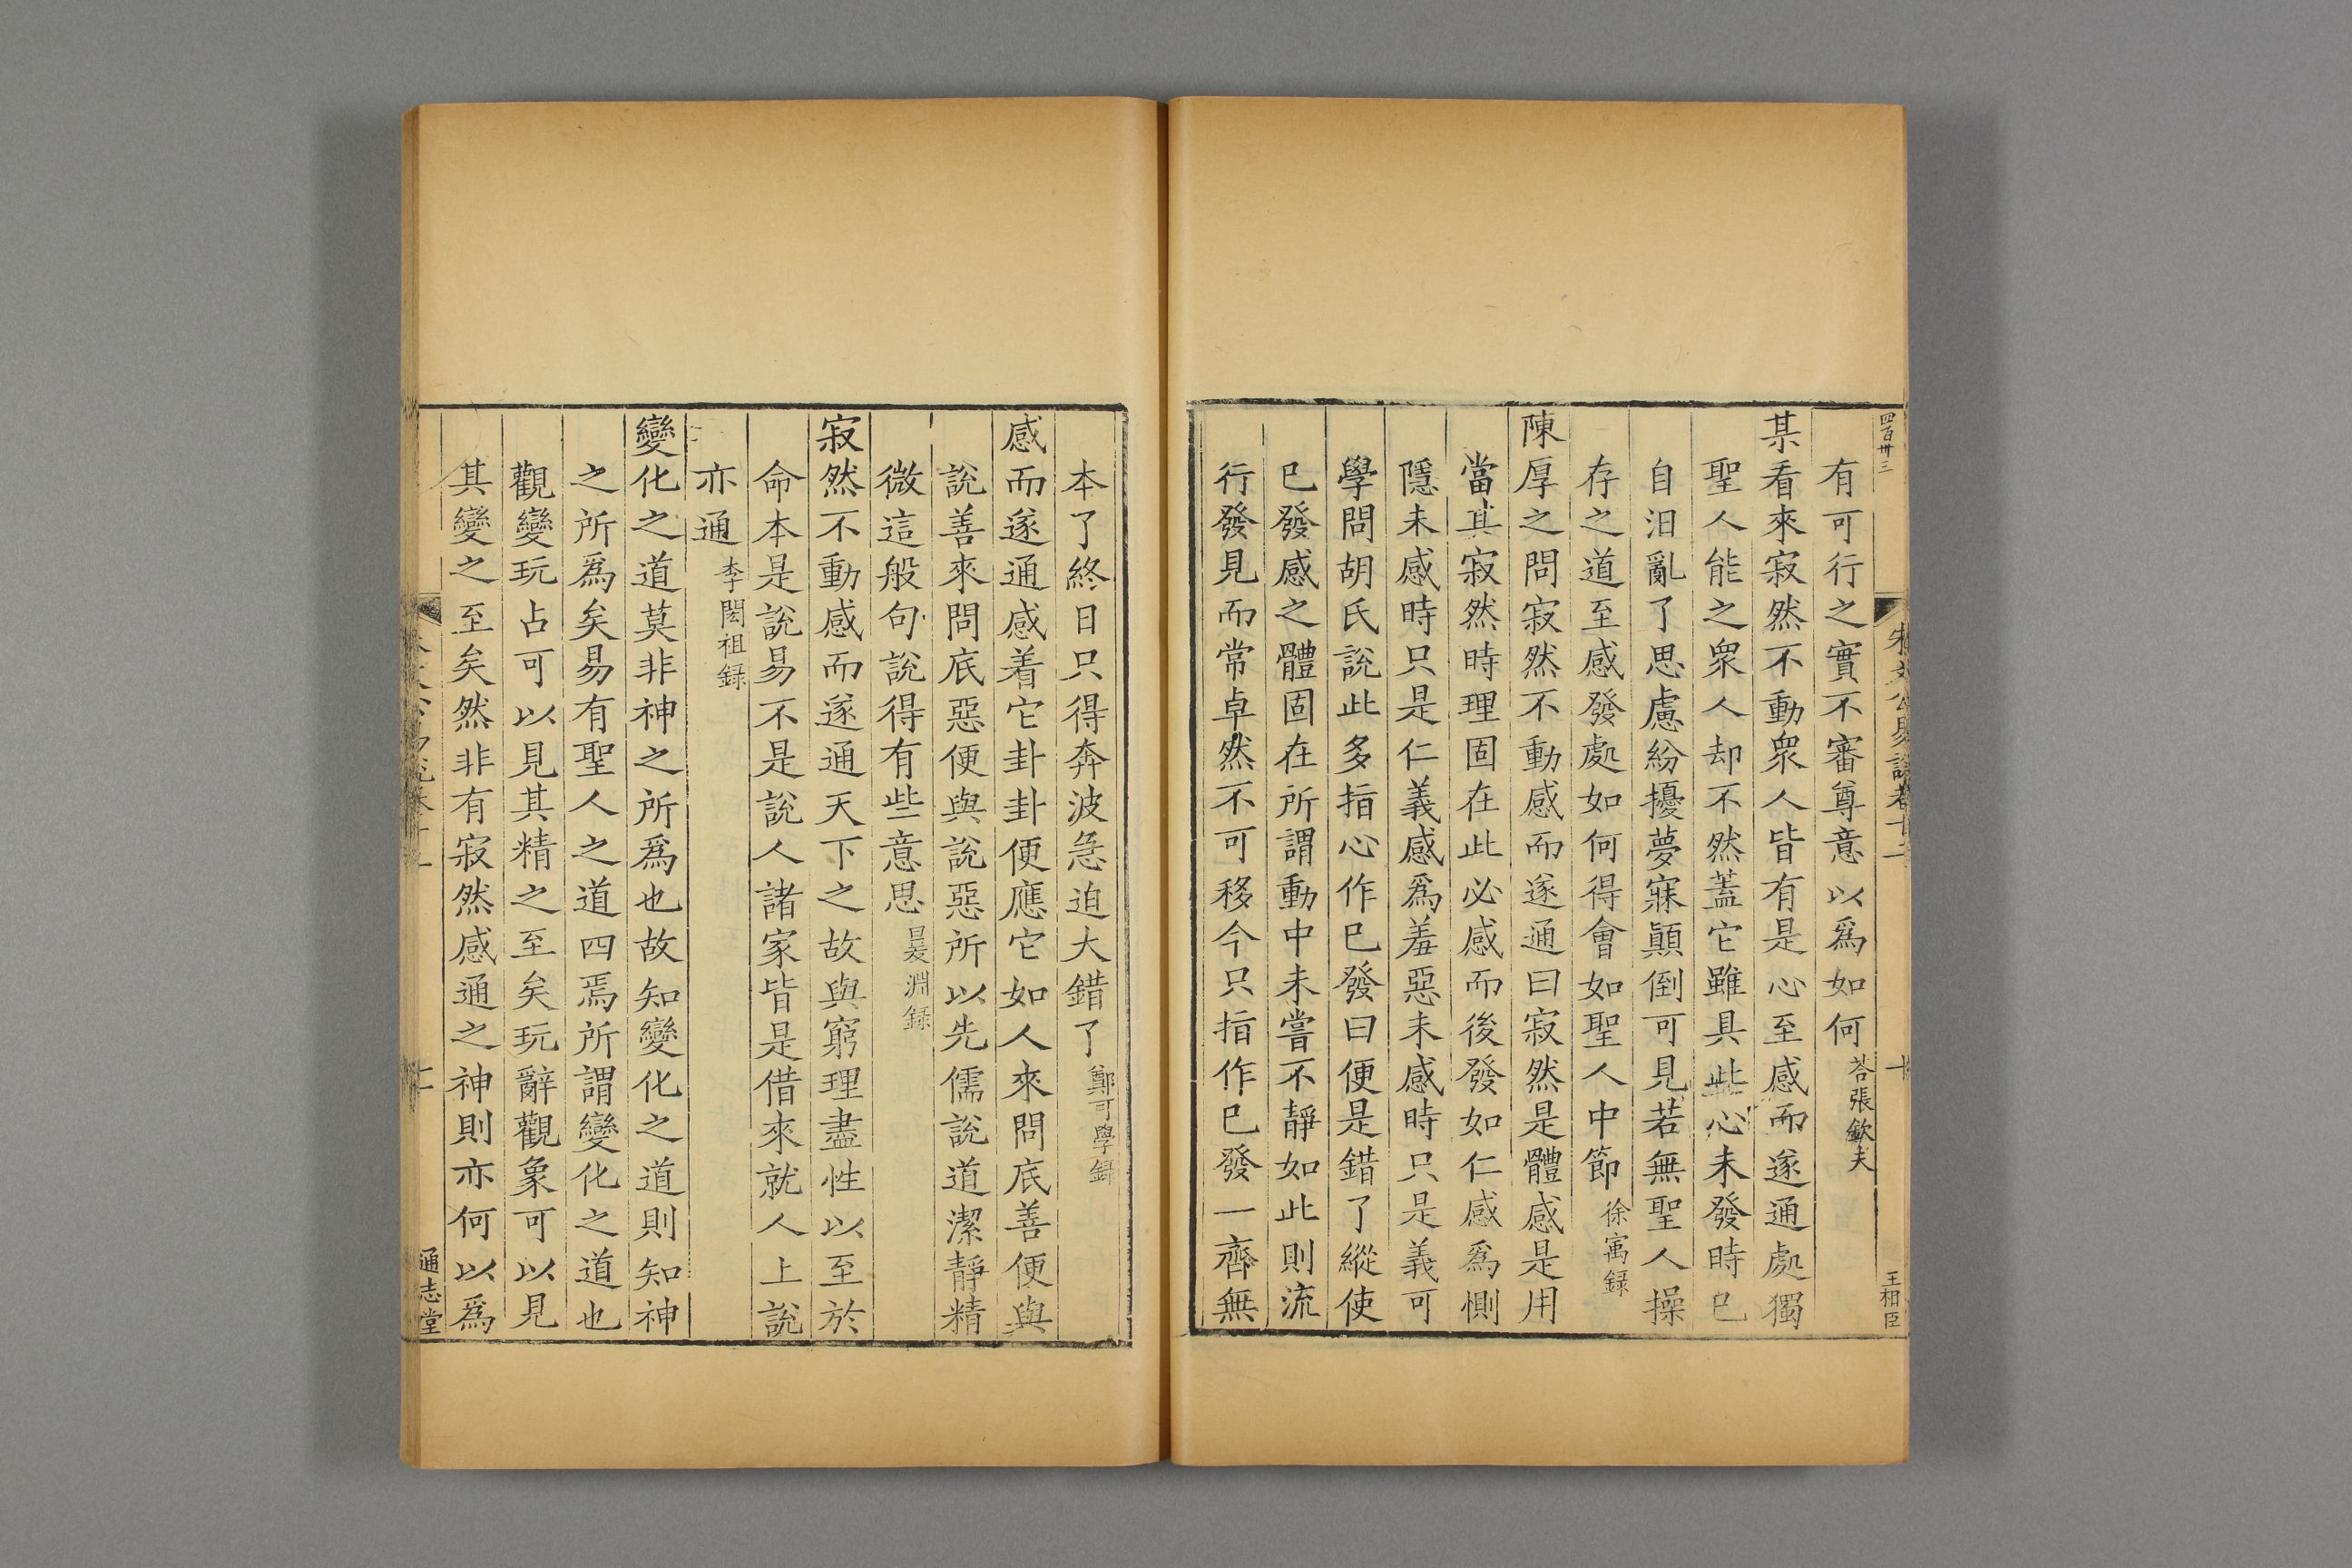 四百卅三
朱文公易說卷十二
十
王相臣
有可行之實不審尊意以爲如何荅張欽夫
某看來寂然不動衆人皆有是心至感而遂通處獨
聖人能之衆人却不然蓋它雖具此心未發時已
自汨亂了思慮紛擾夢寐顚倒可見若無聖人操
存之道至感發處如何得會如聖人中節徐㝢録
陳厚之問寂然不動感而遂通曰寂然是體感是用
當其寂然時理固在此必感而後發如仁感爲惻
隱未感時只是仁義感爲羞惡未感時只是義可
學問胡氏說此多指心作已發曰便是錯了縱使
已發感之體固在所謂動中未嘗不靜如此則流
行發見而常卓然不可移今只指作已發一齊無
本了終日只得奔波急迫大錯了鄭可學録
感而遂通感着它卦卦便應它如人來問底善便與
說善來問底惡便與說惡所以先儒說道潔靜精
微這般句說得有些意思㬊淵録
寂然不動感而遂通天下之故與窮理盡性以至於
命本是說易不是說人諸家皆是借來就人上說
亦通李閎祖録
變化之道莫非神之所爲也故知變化之道則知神
之所爲矣易有聖人之道四焉所謂變化之道也
觀變玩占可以見其精之至矣玩辭觀象可以見
其變之至矣然非有寂然感通之神則亦何以爲
通志堂